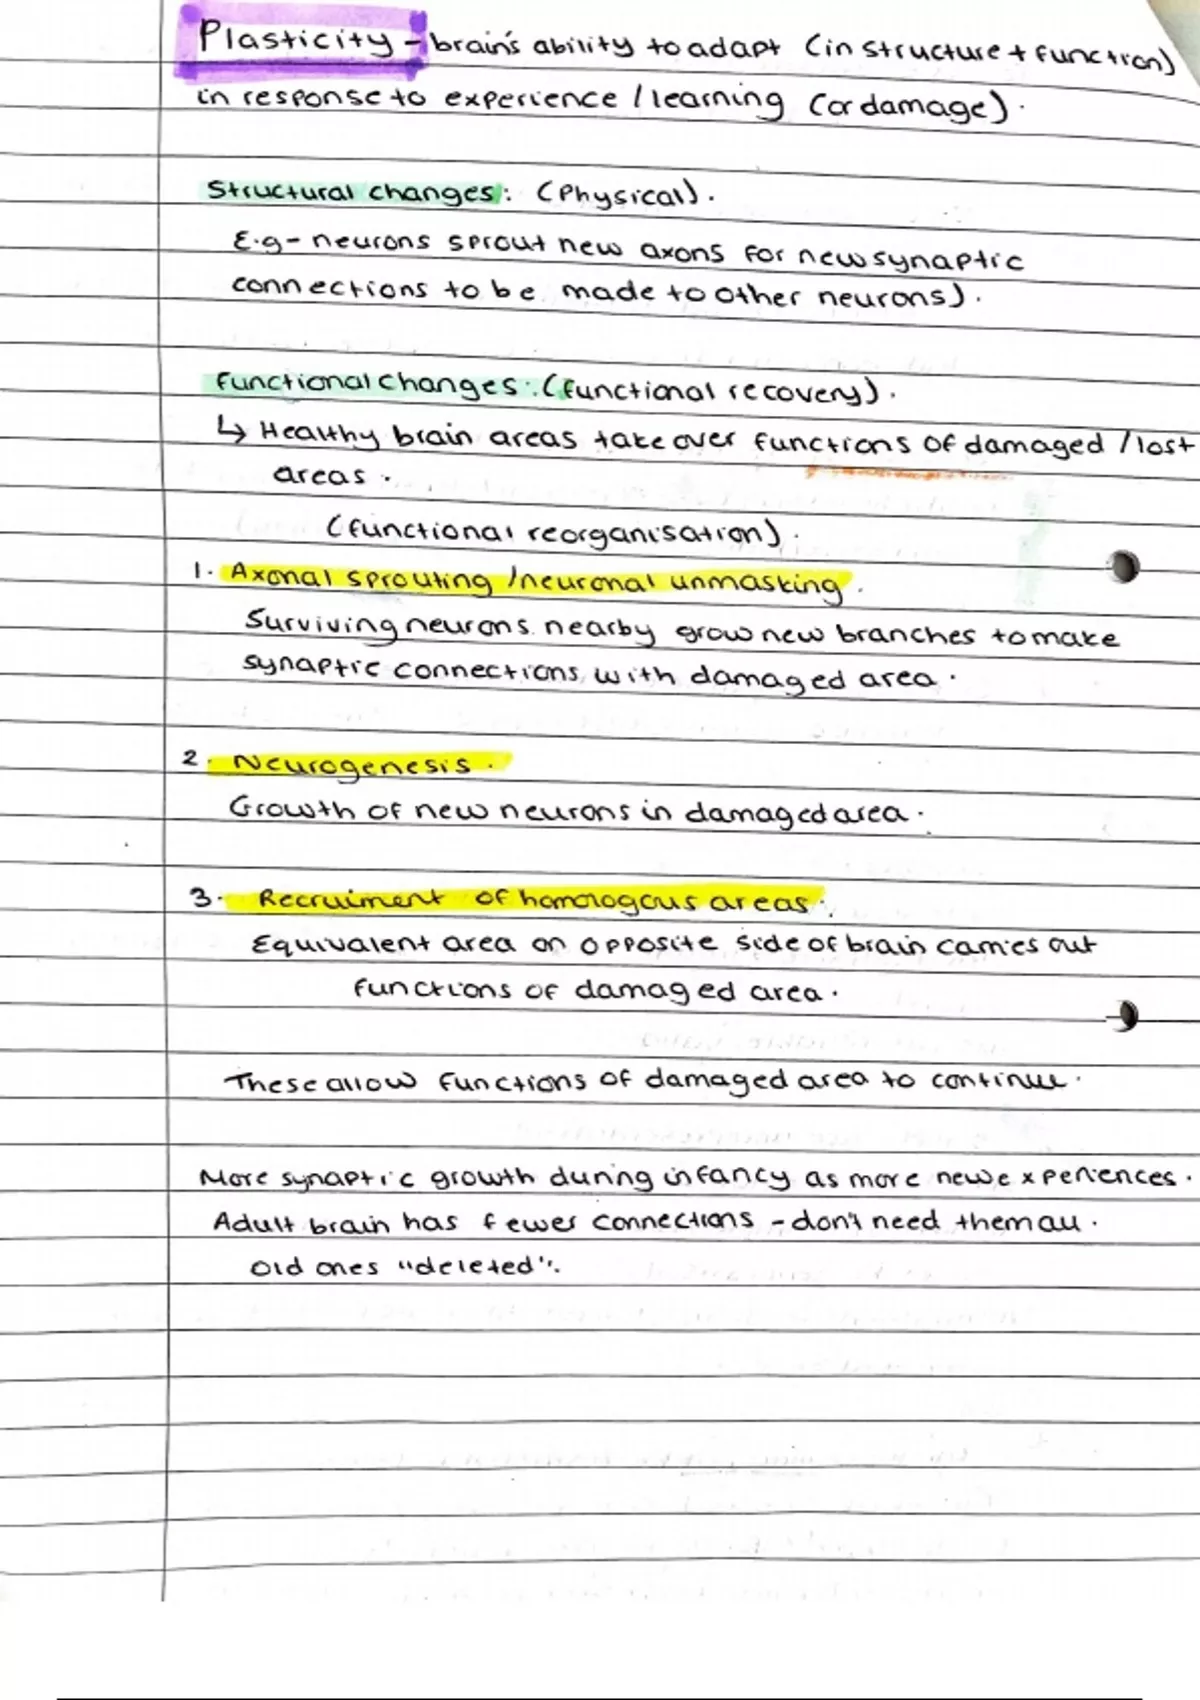 Plasticity - brain's ability to adapt (in structure + function)
in response to experience / learning (or damage).
Structural changes: (Physical).
E.g - neurons sprout new axons for new synaptic
connections to be made to other neurons).
Functional changes: (functional recovery).
↳ Healthy brain areas take over functions of damaged / lost
areas.
(functional reorganisation).
1. Axonal sprouting / neuronal unmasking.
Surviving neurons nearby grow new branches to make
synaptic connections with damaged area.
2. Neurogenesis.
Growth of new neurons in damaged area.
3. Recruiment of homologous areas.
Equivalent area on opposite side of brain carries out
functions of damaged area.
These allow functions of damaged area to continue.
More synaptic growth during infancy as more new experiences.
Adult brain has fewer connections - don't need them all.
Old ones "deleted".